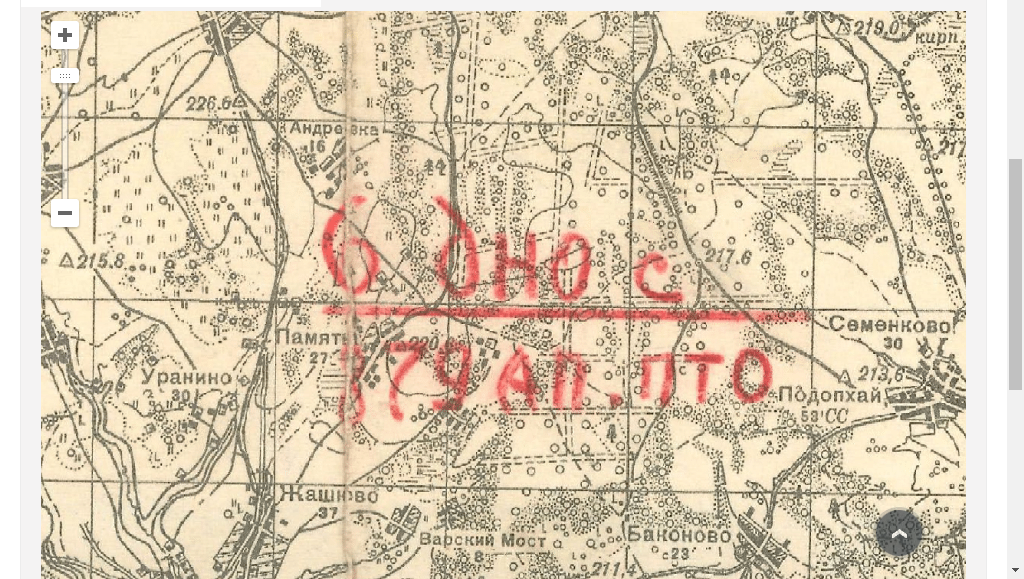 219.0
кирп.
226.6
Андреевка
16
217
б дно с
217.6
215.8
Семенково
30
Память
27
879 АП. ПТО
213,6
Уранино
30
Подопхай
53 СС
Жашково
37
Варский Мост
8
Баконово
23
211,4